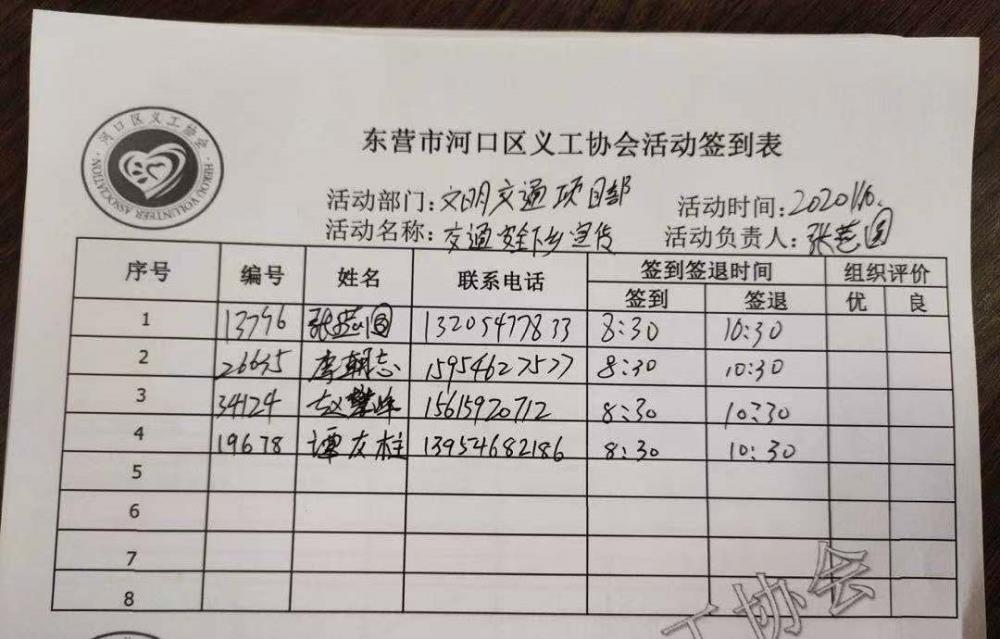 河口区义工协会
HEKOU VOLUNTEER ASSOCIATION
东营市河口区义工协会活动签到表
活动部门:文明交通项目部 活动时间:2020
活动名称:交通安全下乡宣传 活动负责人:张芸圆
序号 编号 姓名 联系电话 签到签退时间 组织评价
签到 签退 优 良
1 13796 张芸圆 13205477833 8:30 10:30
2 26635 李朝志 15954627577 8:30 10:30
3 34124 赵 峰 15615920712 8:30 10:30
4 19678 谭友柱 13954682186 8:30 10:30
5
6
7
8
工协会